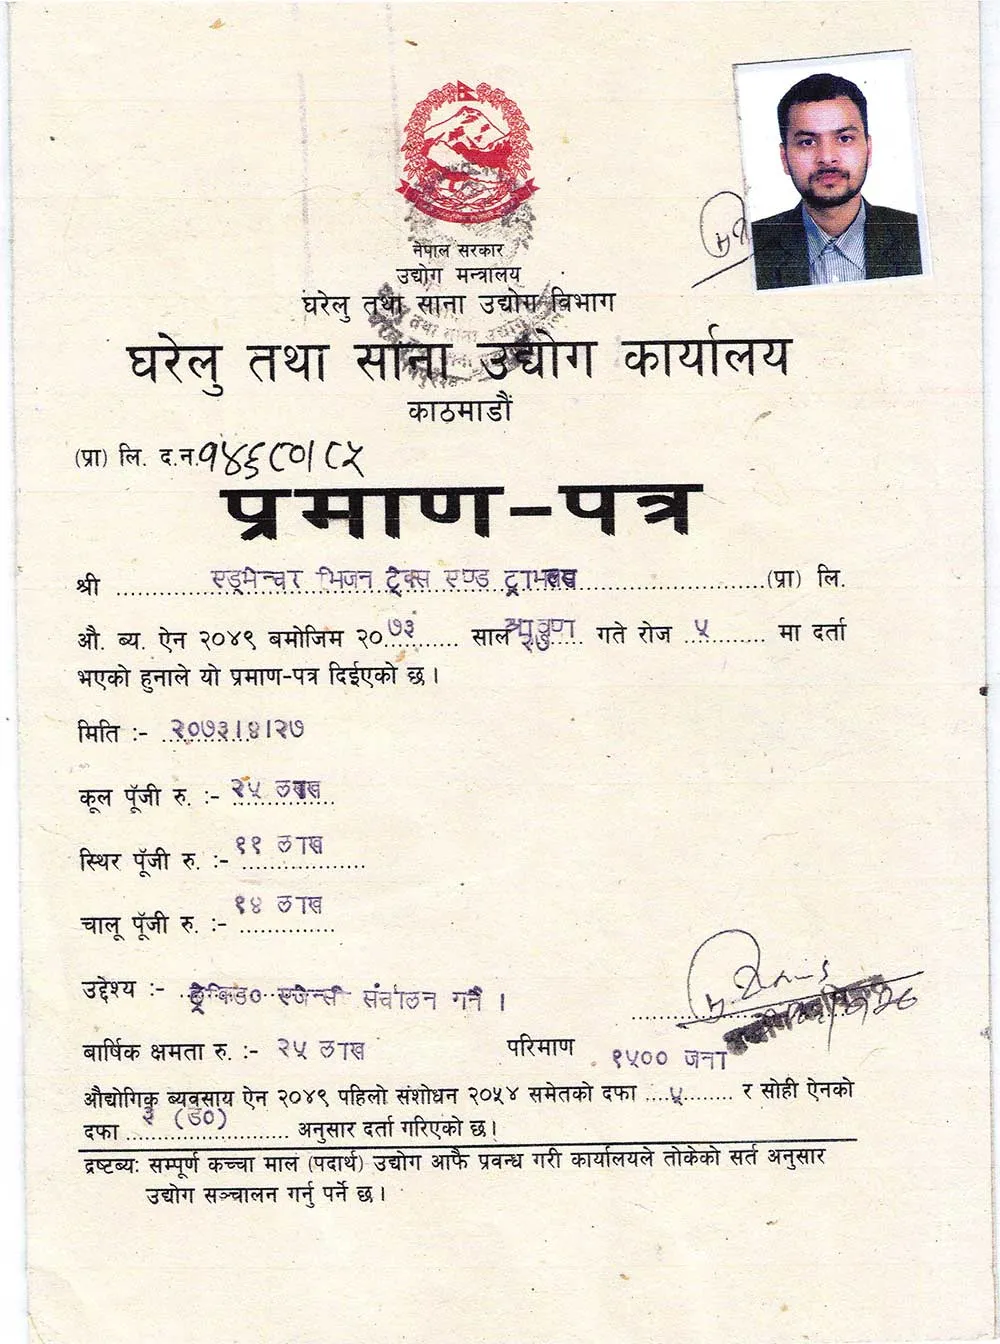 नेपाल सरकार
उद्योग मन्त्रालय
घरेलु तथा साना उद्योग विभाग
घरेलु तथा साना उद्योग कार्यालय
काठमाडौं
(प्रा) लि. द.न. १४६८०।८५
प्रमाण-पत्र
श्री एड्भेन्चर भिजन ट्रेक्स एण्ड ट्राभल्स (प्रा) लि.
औ. ब्य. ऐन २०४९ बमोजिम २०७३ साल श्रावण २७ गते रोज ५ मा दर्ता
भएको हुनाले यो प्रमाण-पत्र दिईएको छ।
मिति :- २०७३।४।२७
कूल पूँजी रु. :- २५ लाख
स्थिर पूँजी रु. :- ११ लाख
चालू पूँजी रु. :- १४ लाख
उद्देश्य :- ट्रेकिङ एजेन्सी संचालन गर्ने ।
बार्षिक क्षमता रु. :- २५ लाख परिमाण १५०० जना
औद्योगिक ब्यवसाय ऐन २०४९ पहिलो संशोधन २०५४ समेतको दफा ५ र सोही ऐनको
दफा ३ (ङ०) अनुसार दर्ता गरिएको छ।
द्रष्टब्य: सम्पूर्ण कच्चा माल (पदार्थ) उद्योग आफै प्रवन्ध गरी कार्यालयले तोकेको सर्त अनुसार
उद्योग सञ्चालन गर्नु पर्ने छ।